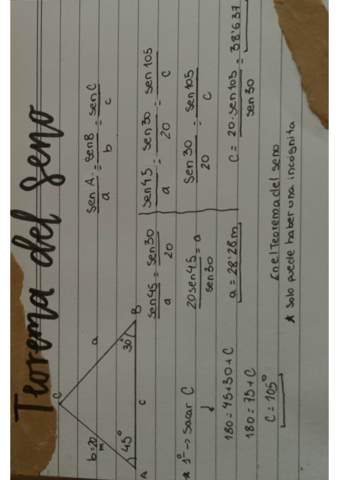 Teorema del seno
C
b=20 m
a
45°
30°
A
c
B
sen A / a = sen B / b = sen C / c
* 1º -> Sacar C
180 = 45+30+C
180 = 75+C
C = 105°
sen45 / a = sen30 / 20
20 sen45 / sen30 = a
a = 28'28m
sen45 / a = sen30 / 20 = sen105 / c
sen30 / 20 = sen105 / c
c = 20·sen105 / sen30 = 38'637
En el Teorema del seno
* Solo puede haber una incognita